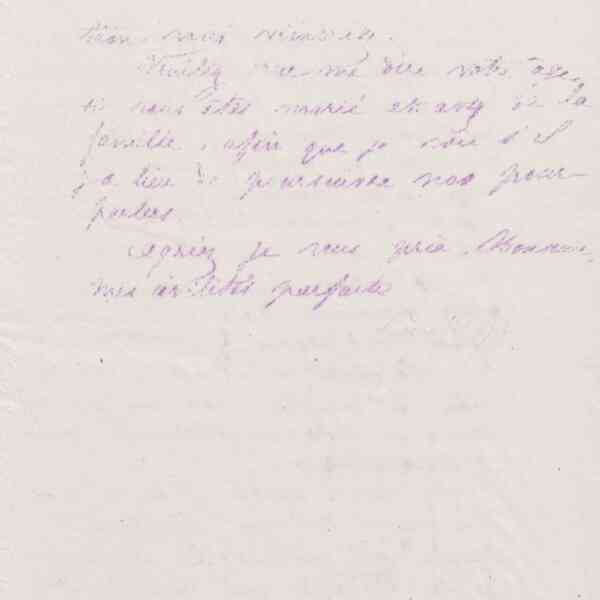 tion nous
Veuillez me dire votre âge,
si vous êtes marié et avez de la
famille, afin que je voie s'il
y a lieu de poursuivre nos pour-
parlers.
Agréez je vous prie, Monsieur,
mes civilités parfaites